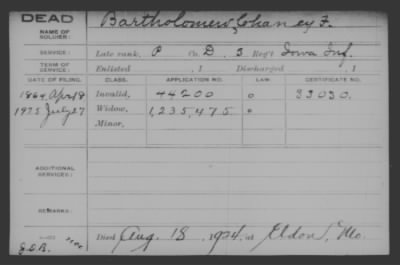 DEAD
NAME OF SOLDIER:
Bartholomew, Chaney F.
SERVICE:
Late rank, P Co. D, 3 Reg't Iowa Inf.
TERM OF SERVICE:
Enlisted , 1 Discharged , 1
DATE OF FILING. CLASS. APPLICATION NO. LAW. CERTIFICATE NO.
1864, Apr 18 Invalid, 44200 o 33030.
July 27 Widow, 1,235,475 o
Minor,
ADDITIONAL SERVICES:
REMARKS:
Died Aug. 18, 1924, at Eldon, Mo.